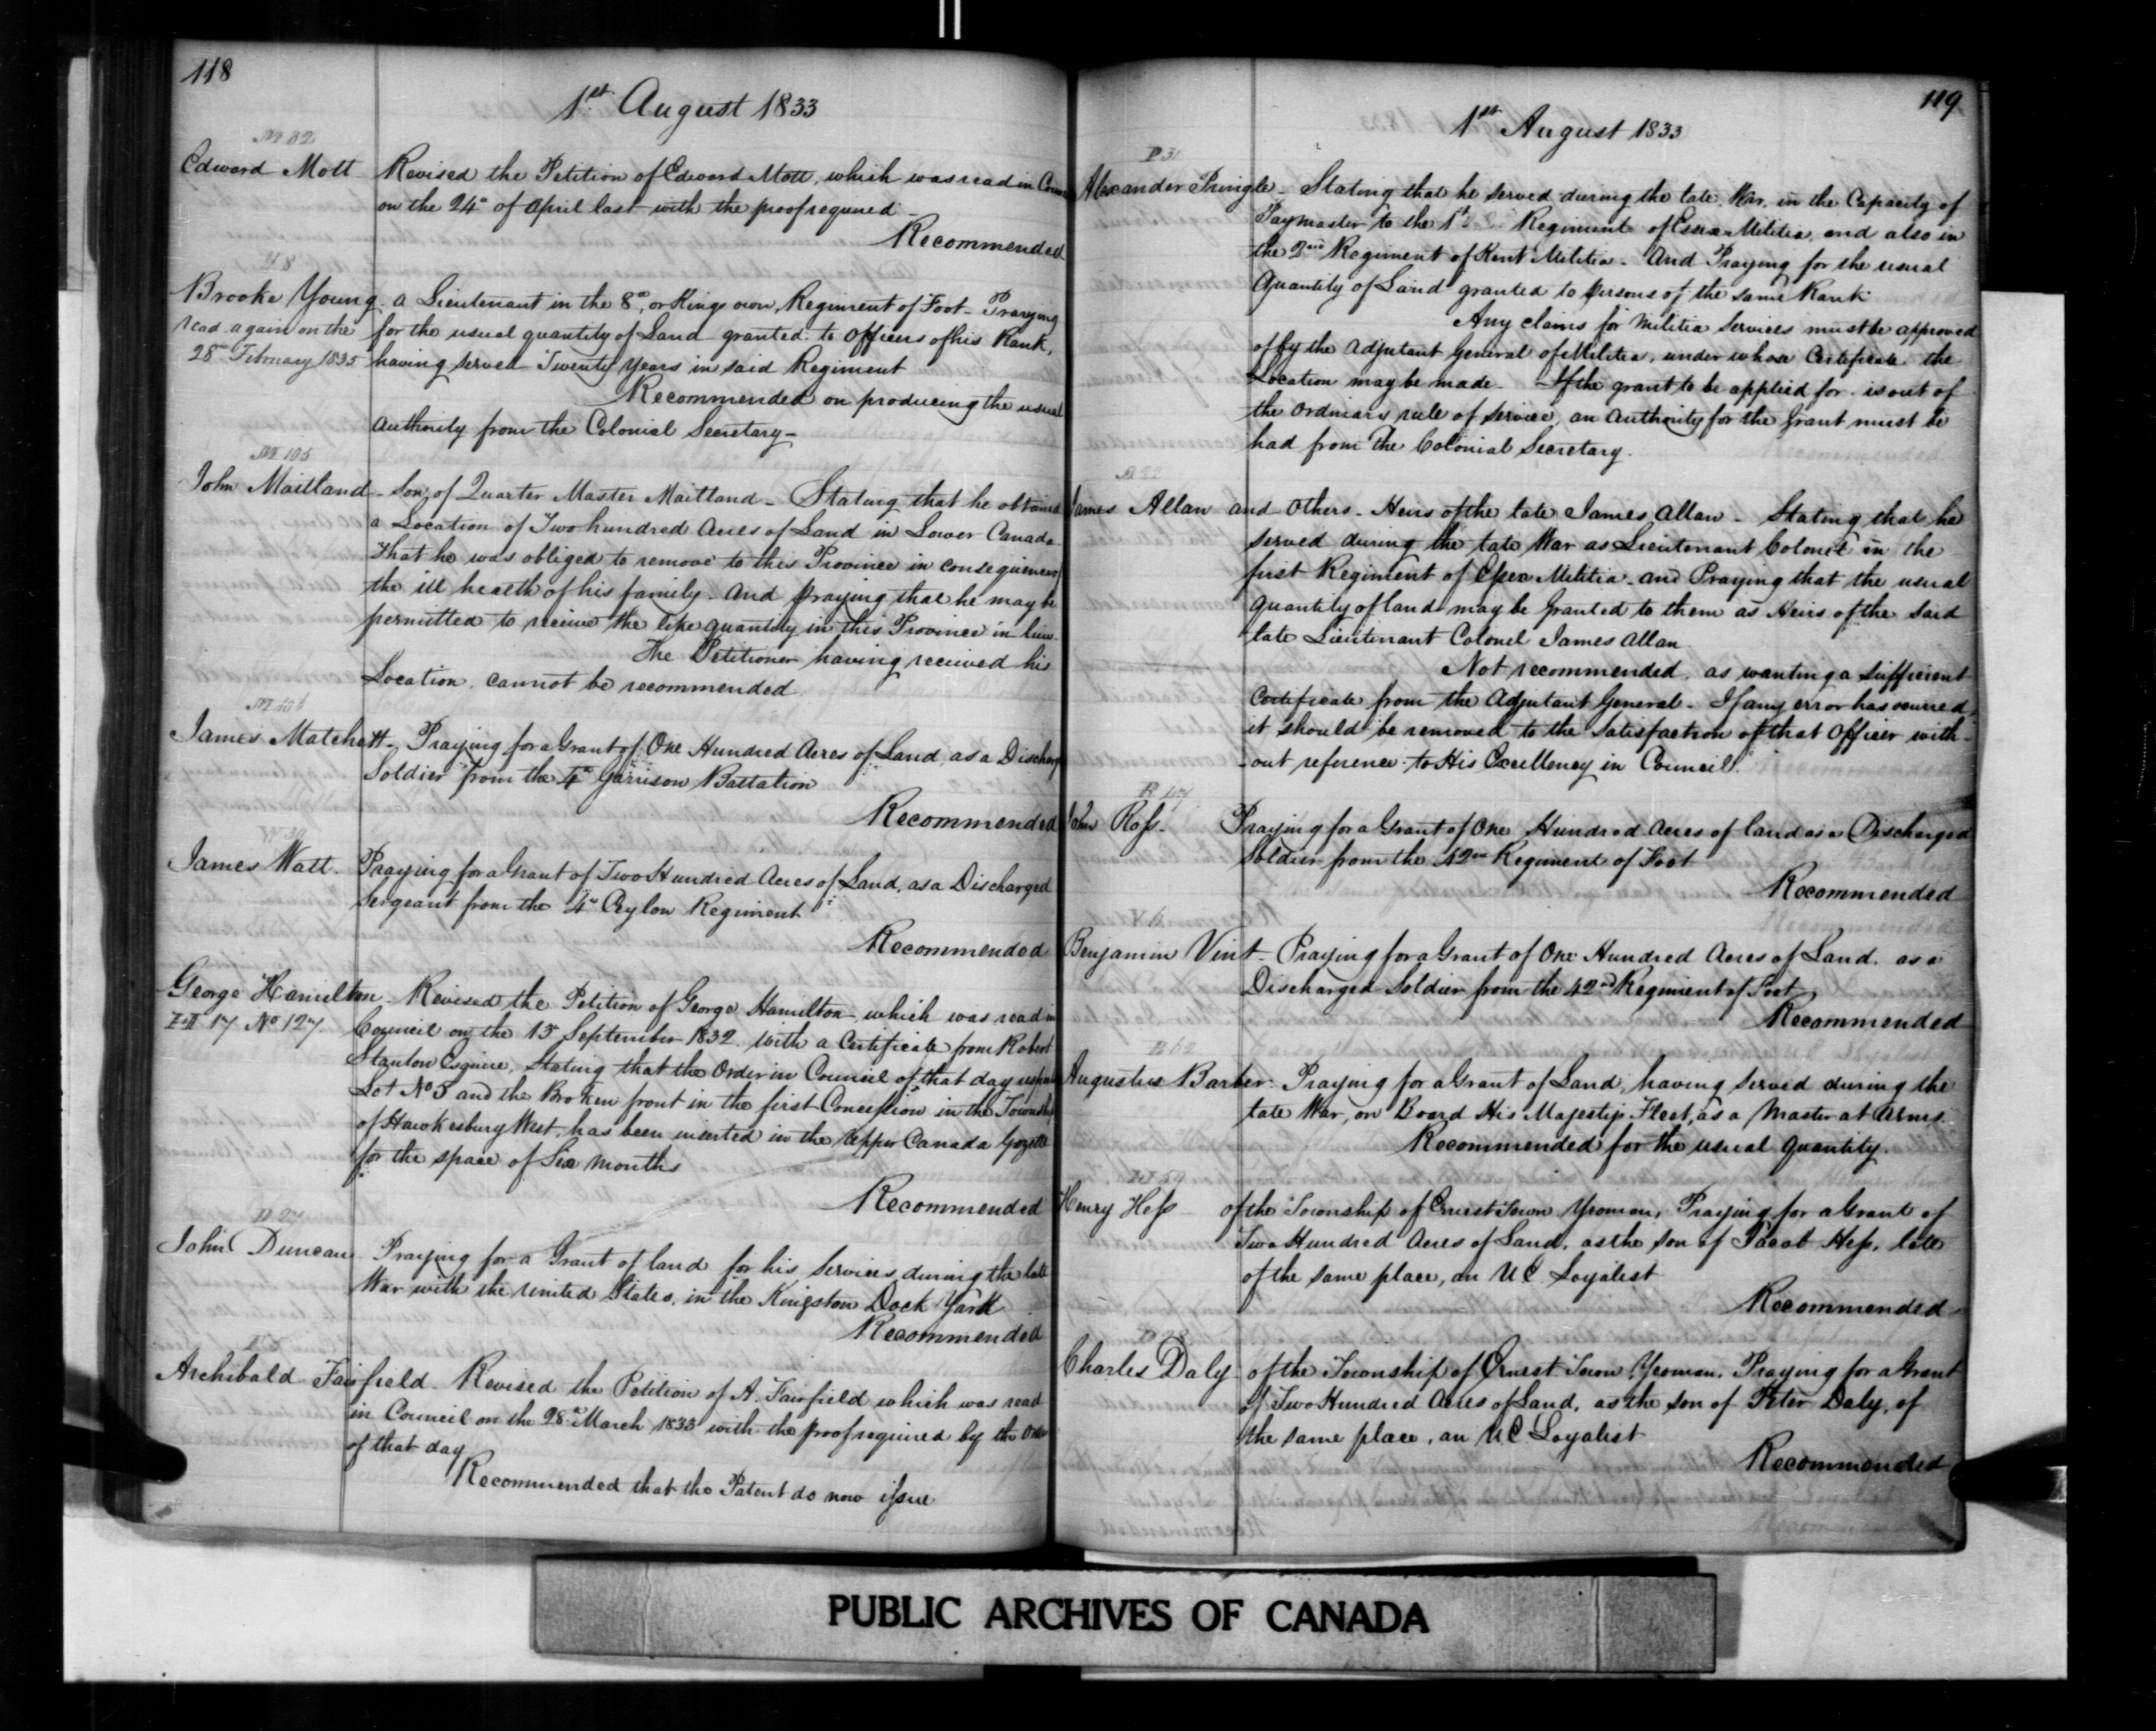 118
1st August 1833
M 82
Edward Mott Revised the Petition of Edward Mott, which was read in
on the 24th of April last with the proof required -
Recommended
Y 8
Brooke Young a Lieutenant in the 8th, or Kings own, Regiment of Foot - Praying
read again on the for the usual quantity of Land granted to Officers of his Rank,
28th February 1835 having served Twenty Years in said Regiment
Recommended on producing the usual
Authority from the Colonial Secretary -
M 105
John Maitland - Son, of Quarter Master Maitland - Stating that he obtained
a Location of Two hundred Acres of Land in Lower Canada
That he was obliged to remove to this Province in consequence
the ill health of his family - And praying that he may be
permitted to receive the like quantity in this Province in lieu -
The Petitioner having received his
Location, cannot be recommended
M
James Matchett - Praying for a Grant of One Hundred Acres of Land, as a
Soldier from the 4th Garrison Battalion
Recommended
W
James Watt. Praying for a Grant of Two Hundred Acres of Land, as a Discharged
Sergeant from the 4th Ceylon Regiment
Recommended
George Hamilton - Revised the Petition of George Hamilton, which was read in
H 17 No 127. Council on the 13th September 1832 with a Certificate from Robert
Stanton Esquire, Stating that the Order in Council of that day
Lot No 3 and the Broken front in the first Concession in the
of Hawkesbury West, has been inserted in the Upper Canada Gazette
for the space of Six Months
Recommended
D 27
John Duncan Praying for a Grant of land for his Services during the late
War with the United States, in the Kingston Dock Yard
Recommended
F 5
Archibald Fairfield - Revised the Petition of A. Fairfield which was read
in Council on the 28th March 1833 with the proof required by the Order
of that day
Recommended that the Patent do now issue
119
1st August 1833
P 3
Alexander Pringle - Stating that he served during the late War, in the Capacity of
Paymaster to the 1st Regiment of Essex Militia, and also in
the 2nd Regiment of Kent Militia - And Praying for the usual
Quantity of Land granted to persons of the same Rank
Any claims for Militia Services must be approved
of by the Adjutant General of Militia, under whose Certificate the
Location may be made - If the grant to be applied for is out of
the ordinary rule of service, an Authority for the Grant must be
had from The Colonial Secretary.
A 22
James Allan and Others - Heirs of the late James Allan - Stating that he
served during the late War as Lieutenant Colonel in the
first Regiment of Essex Militia - and Praying that the usual
Quantity of land may be Granted to them as Heirs of the Said
late Lieutenant Colonel James Allan
Not recommended, as wanting a Sufficient
Certificate from the Adjutant General - If any error has occurred,
it should be removed to the Satisfaction of that Officer with-
-out reference to His Excellency in Council.
R 47
John Ross. Praying for a Grant of One Hundred Acres of land as a Discharged
Soldier from the 42nd Regiment of Foot
Recommended
V 6
Benjamin Vint - Praying for a Grant of One Hundred Acres of Land as a
Discharged Soldier from the 42nd Regiment of Foot
Recommended
B 62
Augustus Barber - Praying for a Grant of Land, having served during the
late War, on Board His Majestys Fleet, as a Master at Arms
Recommended for the usual Quantity.
H 59
Henry Hess of the Township of Ernest Town Yeoman, Praying for a Grant of
Two Hundred Acres of Land, as the son of Jacob Hess, late
of the same place, an UE Loyalist
Recommended
D
Charles Daly of the Township of Ernest Town Yeoman, Praying for a Grant
of Two Hundred Acres of Land, as the son of Peter Daly, of
the same place, an UE Loyalist
Recommended
PUBLIC ARCHIVES OF CANADA